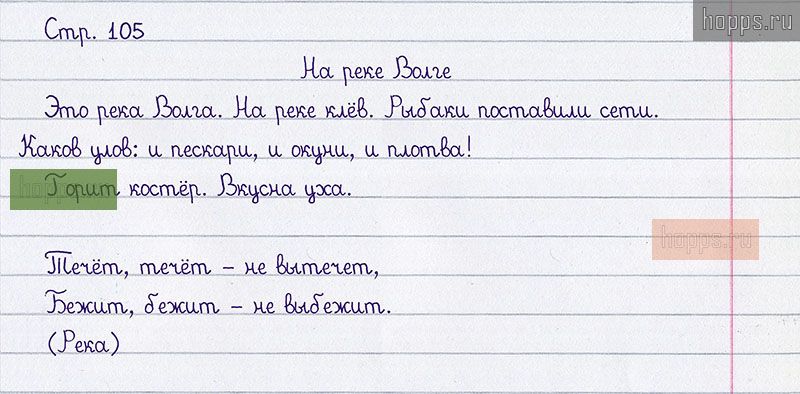 hopps.ru
Стр. 105
На реке Волге
Это река Волга. На реке клёв. Рыбаки поставили сети.
Каков улов: и пескари, и окуни, и плотва!
Горит костёр. Вкусна уха.
hopps.ru
hopps.ru
Течёт, течёт – не вытечет,
Бежит, бежит – не выбежит.
(Река)